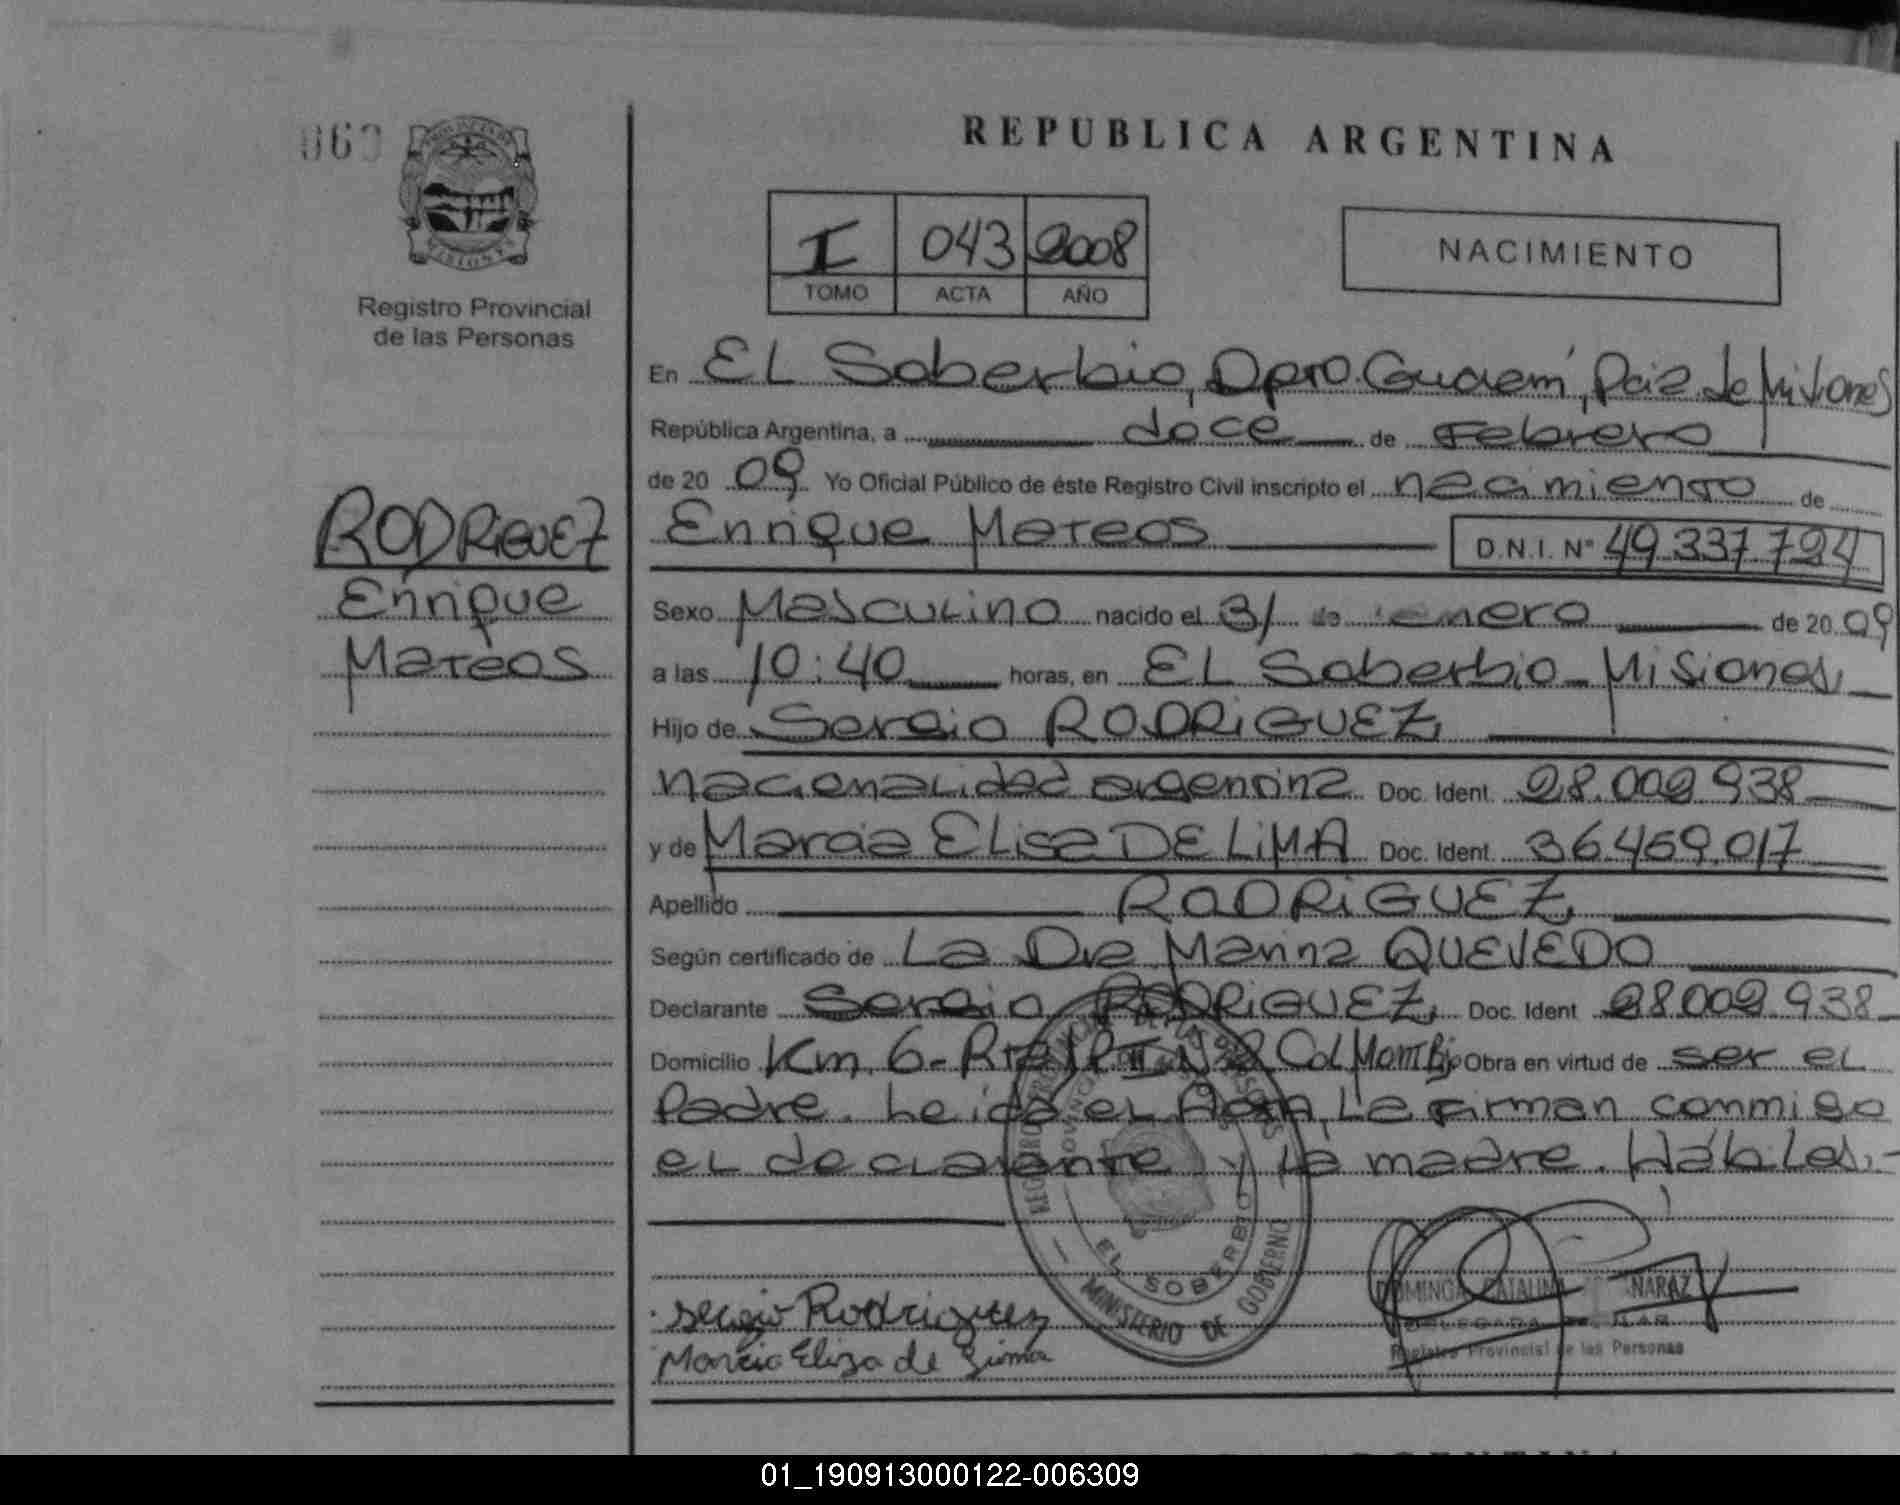 REPUBLICA ARGENTINA
Registro Provincial
de las Personas
I 043 2008
TOMO ACTA AÑO
NACIMIENTO
RODRIGUEZ
Enrique
Mateos
En EL Soberbio, Dpto. Guaraní, Pcia de Misiones
República Argentina, a doce de Febrero
de 20 09 Yo Oficial Público de éste Registro Civil inscripto el nacimiento de
Enrique Mateos D.N.I. Nº 49.337.724
Sexo Masculino nacido el 31 de enero de 20 09
a las 10:40 horas, en EL Soberbio - Misiones
Hijo de Sergio RODRIGUEZ
nacionalidad argentina Doc. Ident. 28.002.938
y de Marcia Elisa DE LIMA Doc. Ident. 36.459.017
Apellido RODRIGUEZ
Según certificado de La Dra Marina QUEVEDO
Declarante Sergio RODRIGUEZ Doc. Ident 28.002.938
Domicilio Km. 6 - Obra en virtud de ser el
Padre. Leída el Acta, La firman conmigo
el declarante y la madre. Hábiles.-
REGISTRO PROVINCIAL DE LAS PERSONAS
EL SOBERBIO
MINISTERIO DE GOBIERNO
Sergio Rodriguez
Marcia Eliza de Lima
DOMINGA CATALINA
DELEGADA
Registro Provincial de las Personas
01_190913000122-006309